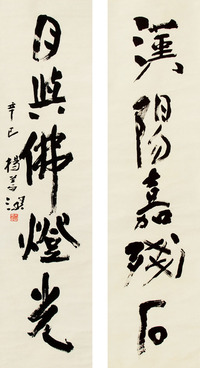 漢陽嘉殘石
日與佛燈光
辛巳 楊善深